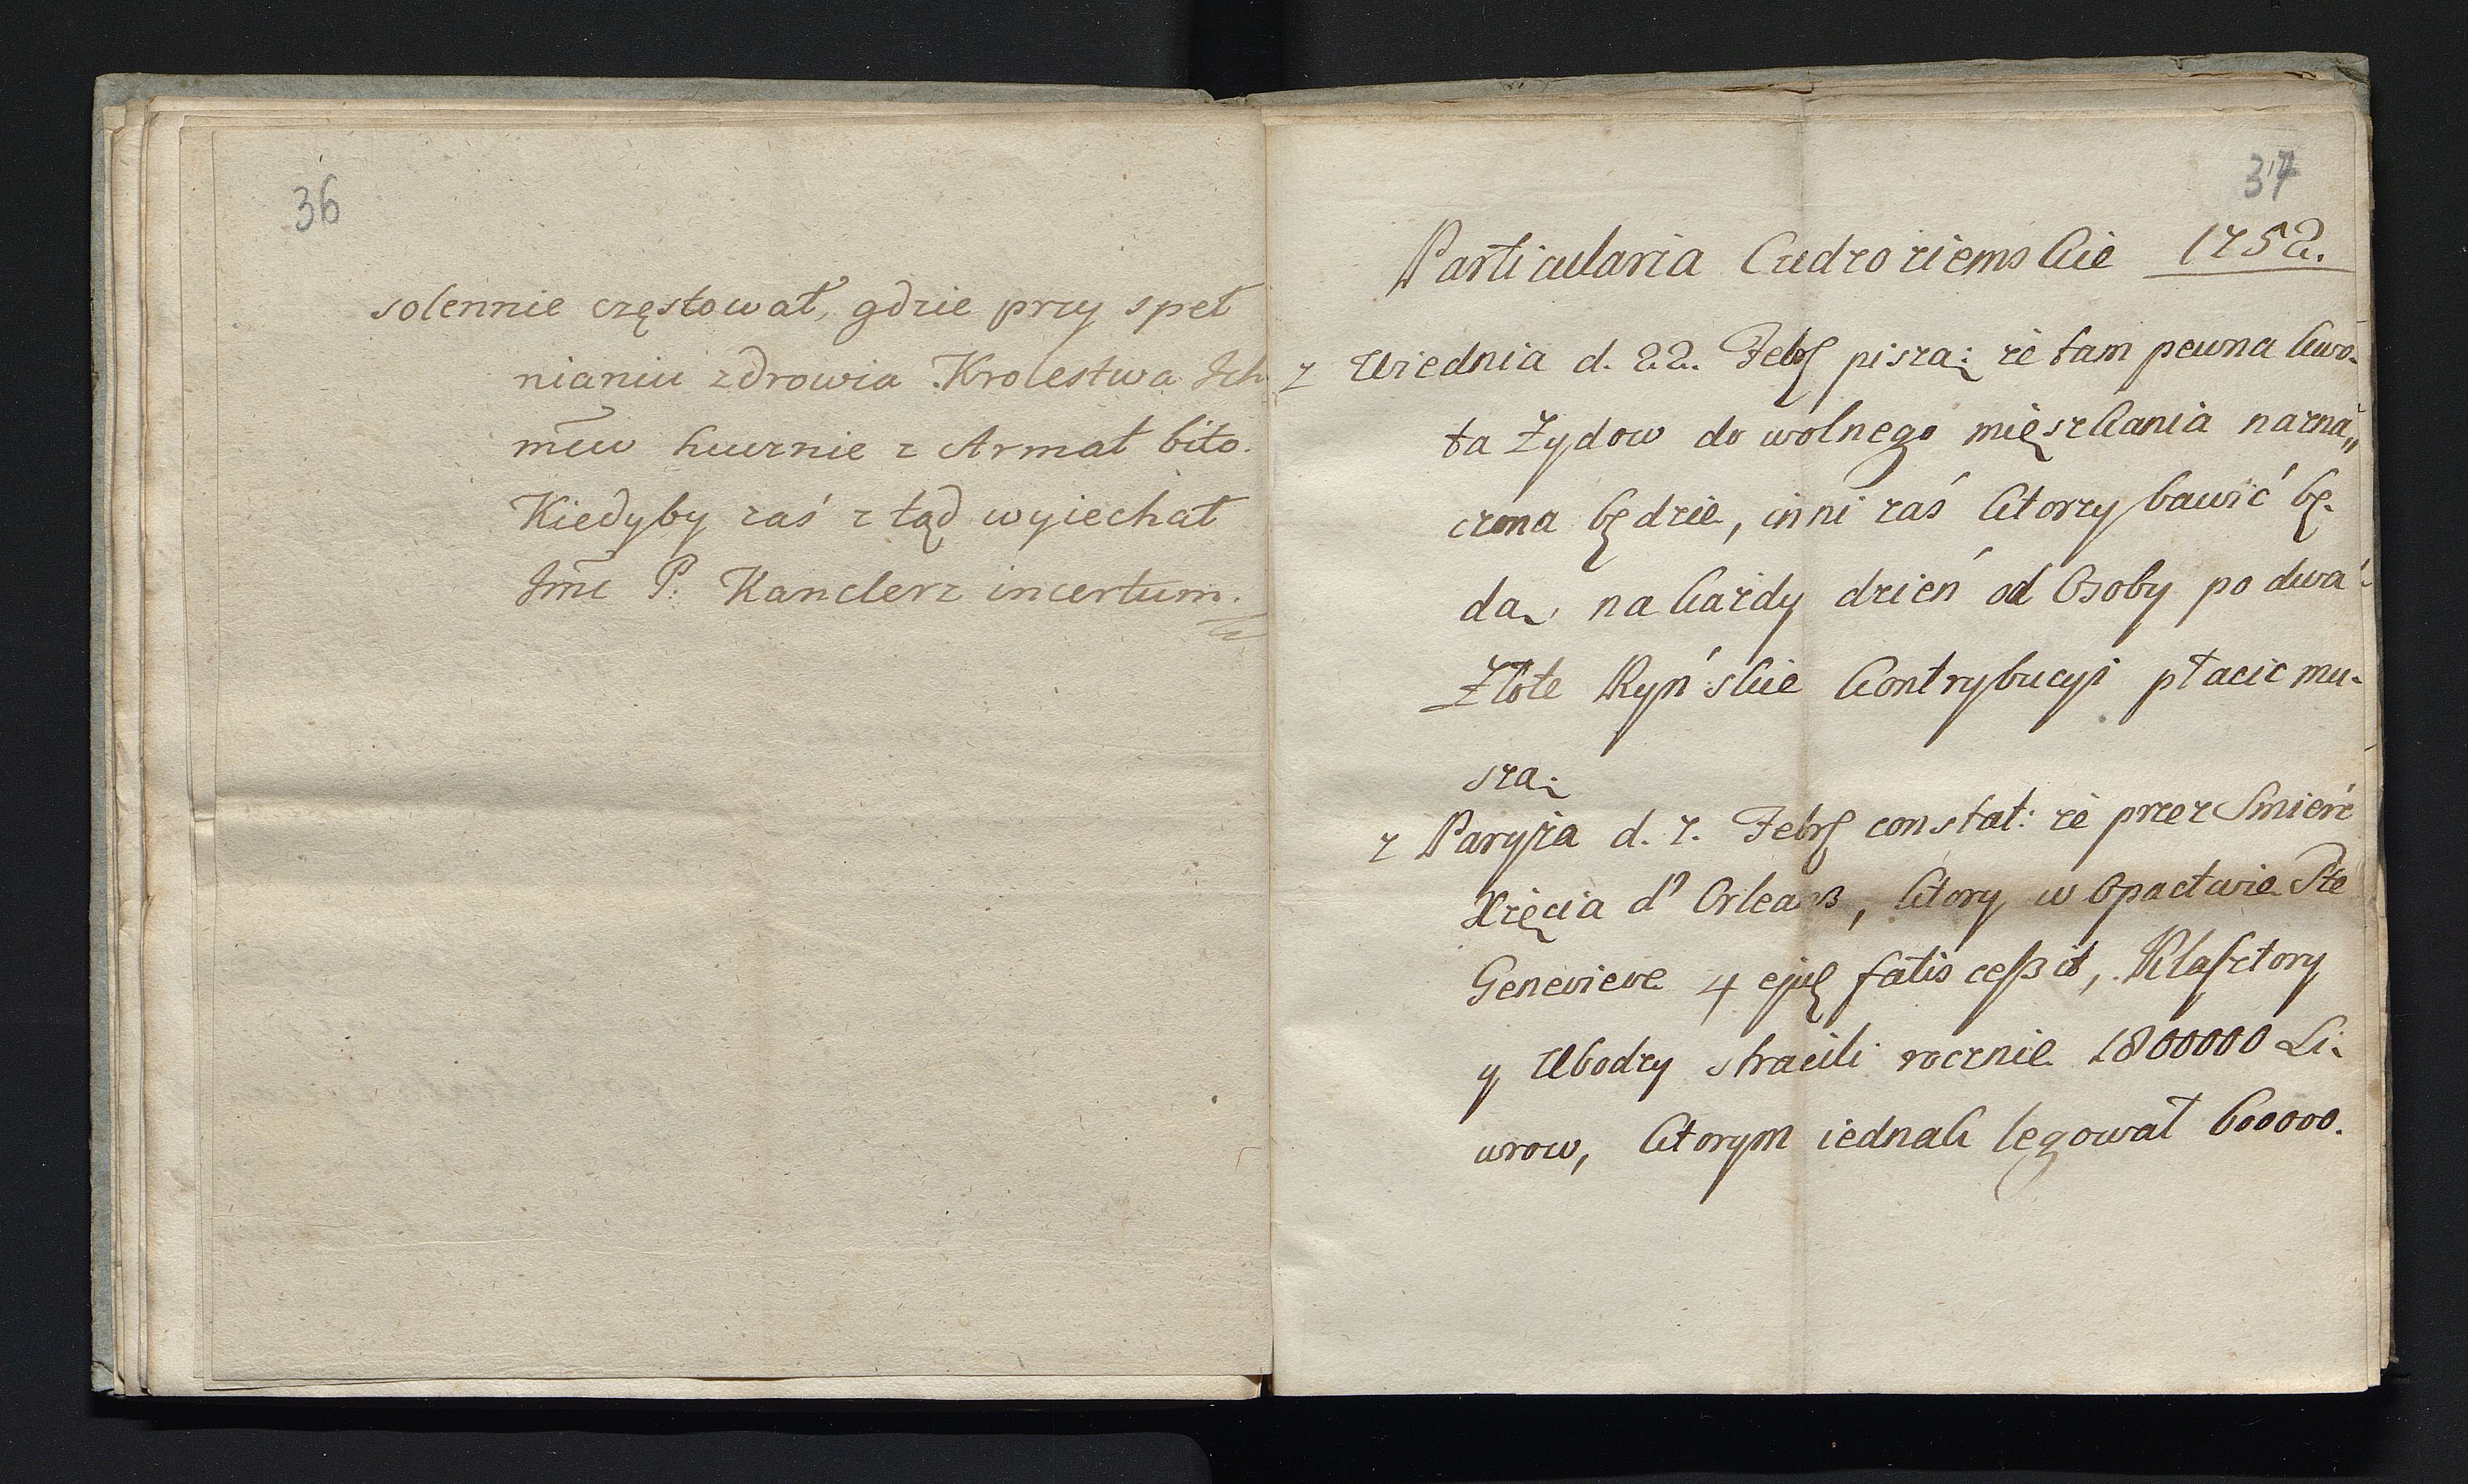 36
solennie częstował, gdzie przy speł
nianiu zdrowia Krolestwa Ich
mciw hucznie z Armat bito.
Kiedyby zaś z tąd wyiechał
Jmć P. Kanclerz incertum.
37
Particularia Cudzoziemskie 1752.
z Wiednia d. 22. Febr piszą: że tam pewna kwo-
ta Zydow do wolnego mięszkania nazna„
czona będzie, inni zaś ktorzy bawić bę-
dą, na każdy dzień od Osoby po dwa
Złote Ryńskie kontrybucyi płacic mu-
szą.
z Paryża d. 7. Febr constat: że przez Smierć
Xzęcia d' Orleans, ktory w Opactwie Ste
Genevieve 4 ejus fatis cessit, Klasztory
y Ubodzy stracili rocznie 1800000 Li-
wrow, ktorym iednak legował 600000.